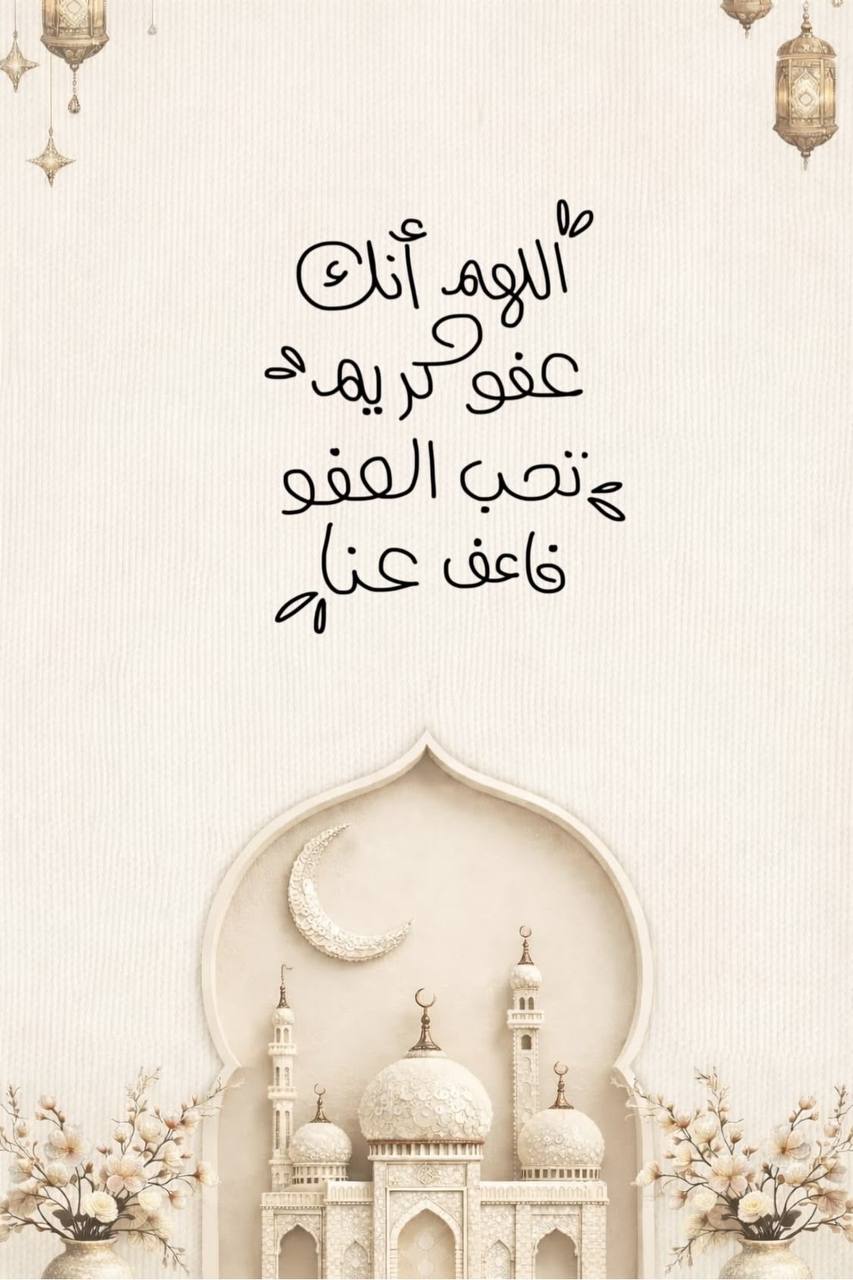 اللهم أنك
عفو كريم
تحب العفو
فاعف عنا